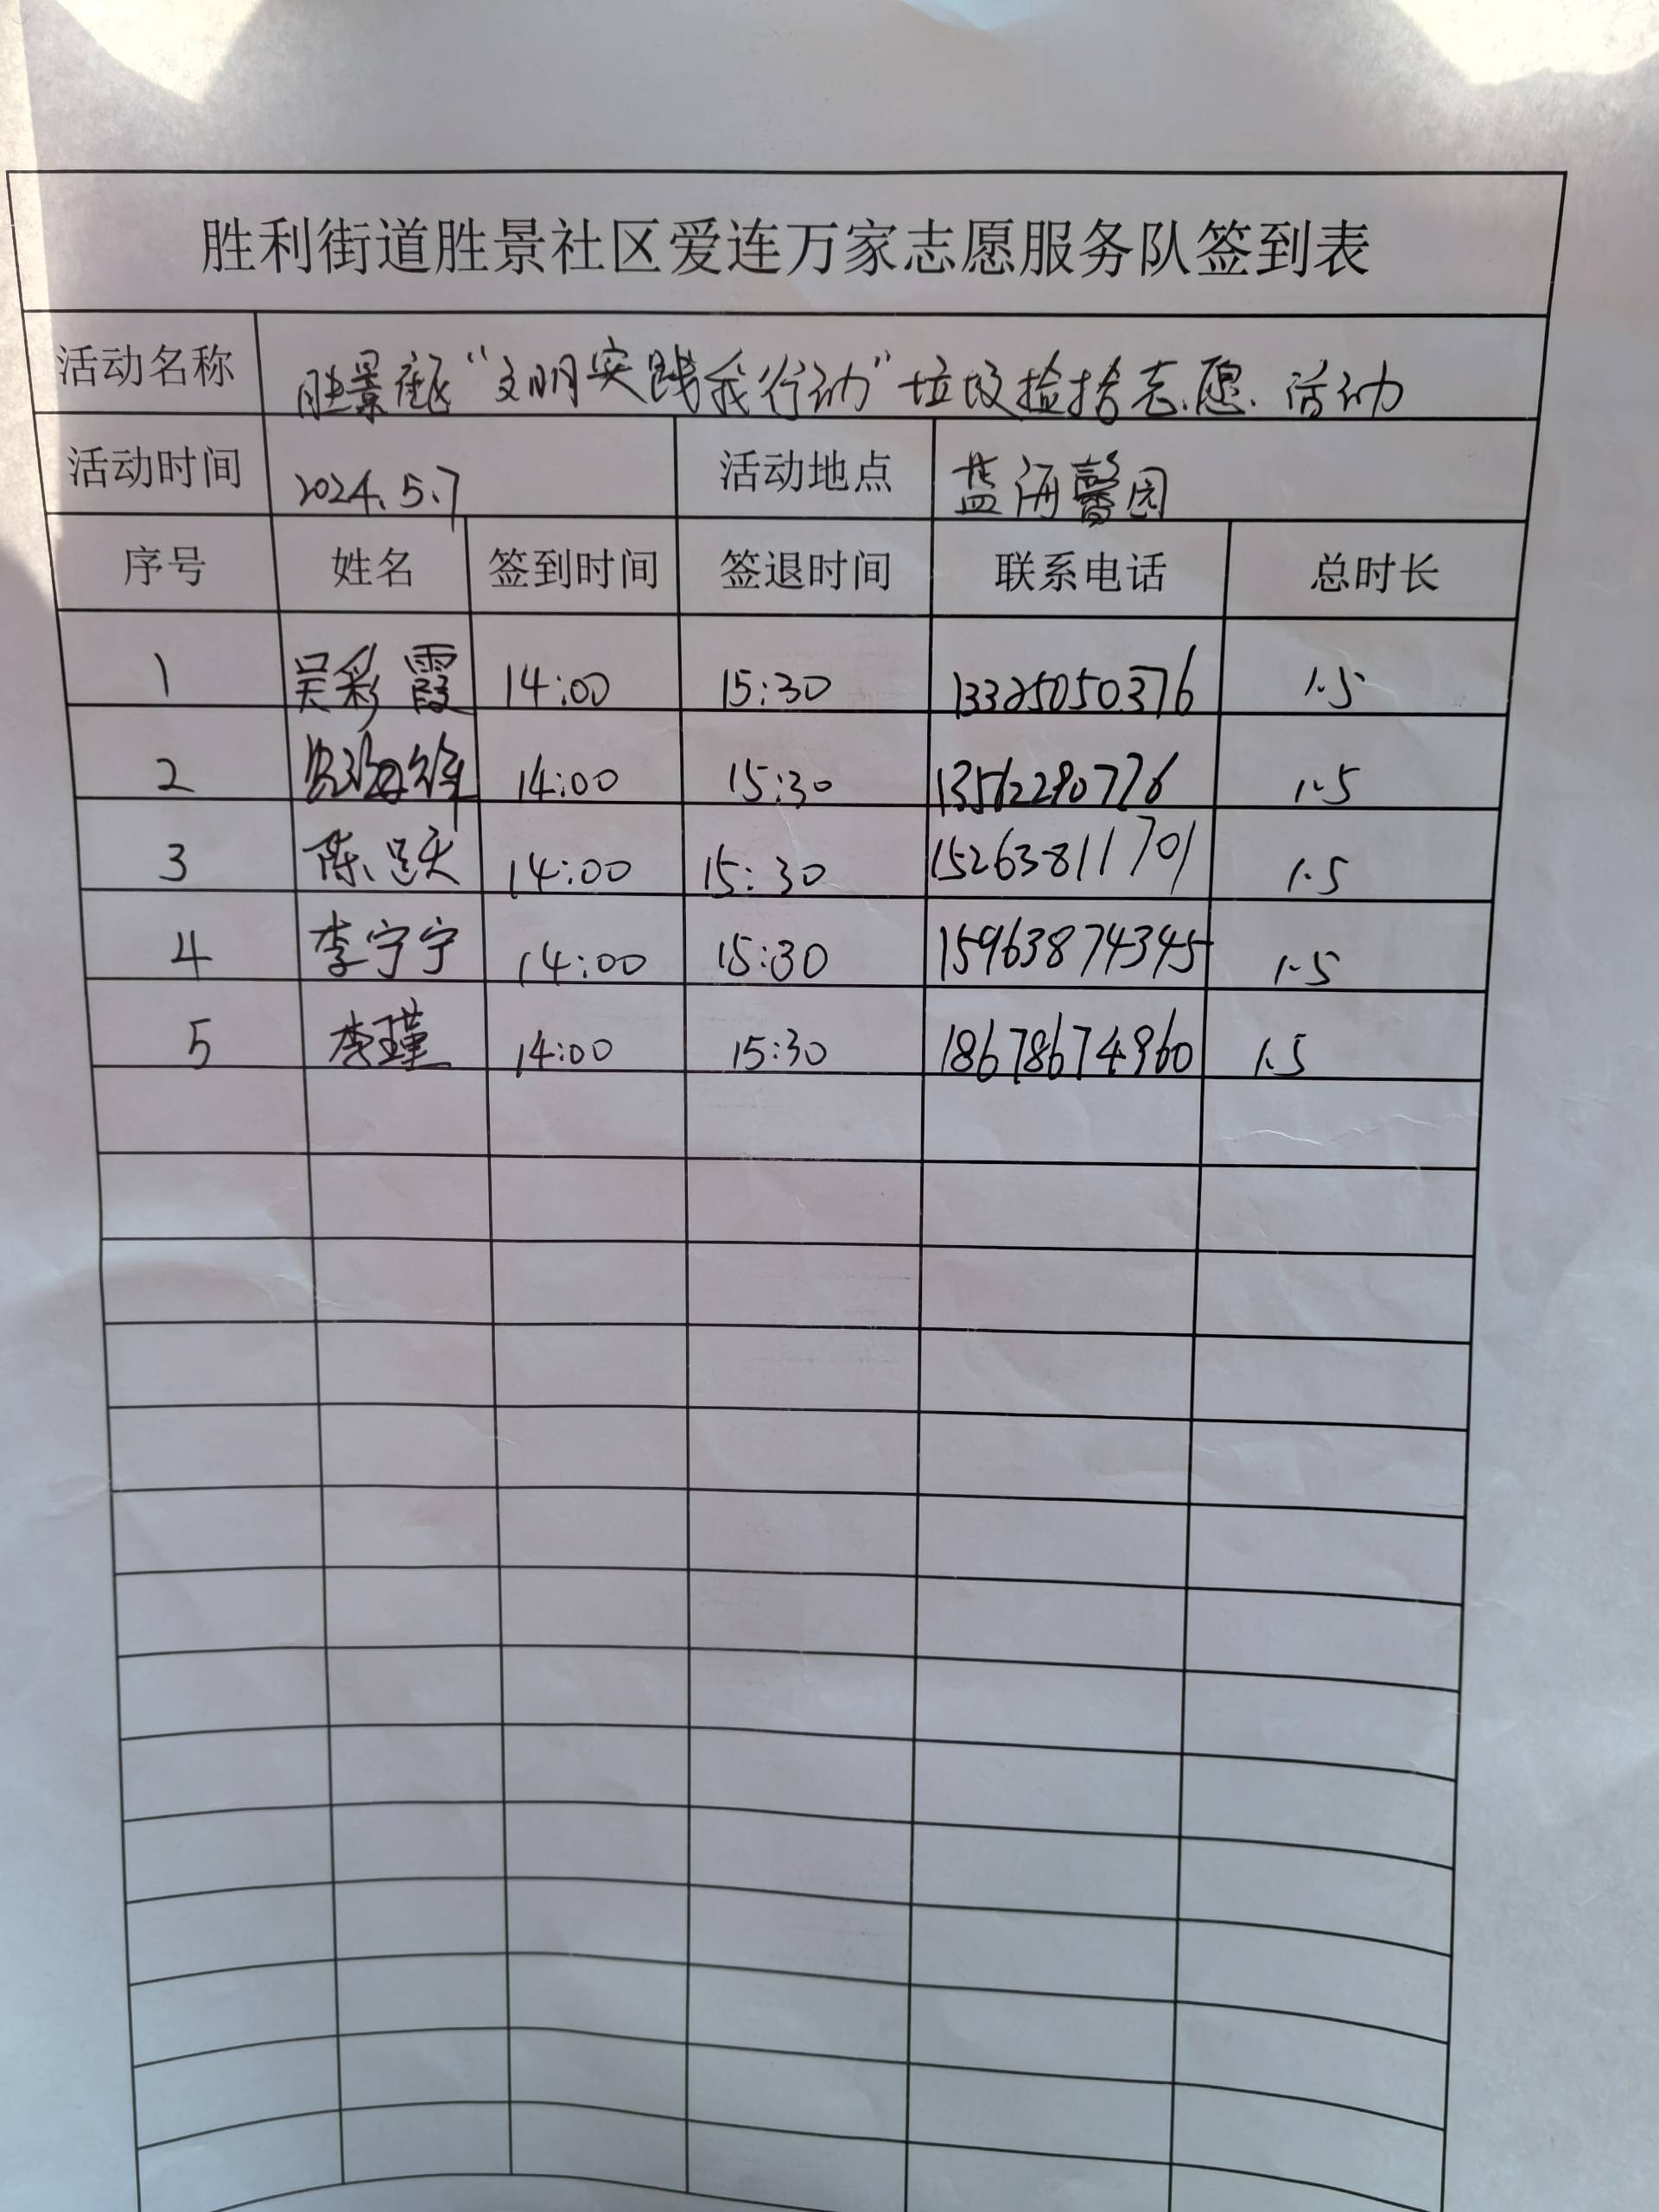 胜利街道胜景社区爱连万家志愿服务队签到表
活动名称 胜景社区“文明实践我行动”垃圾捡拾志愿活动
活动时间 2024.5.7 活动地点 蓝海馨园
序号 姓名 签到时间 签退时间 联系电话 总时长
1 吴彩霞 14:00 15:30 13325050376 1.5
2 14:00 15:30 1.5
3 陈跃 14:00 15:30 15263811701 1.5
4 李宁宁 14:00 15:30 15963874345 1.5
5 李瑾 14:00 15:30 18678674960 1.5